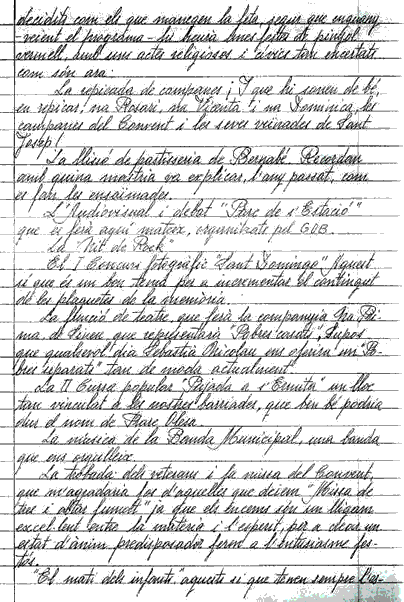 decidits com els que manegen la fita, segur que enguany
-veient el programa- hi haurà unes festes de pinyol
vermell, amb uns actes religiosos i cívics tan encertats
com són ara:
La repicada de campanes ¡I que hi sonen de bé,
en repicar, na Rosari, na Vicenta i na Dominica, les
campanes del Convent i les seves veinades de Sant
Josep!
La lliçó de pastisseria de Bernabé. Recordau
amb quina mestria va explicar, l'any passat, com
es fan les ensaïmades.
L'Audiovisual i debat "Parc de s'Estació"
que es farà aquí mateix, organitzats pel GOB.
La "Nit de Rock"
El I Concurs fotogràfic "Sant Domingo" Aquest
sí que és un bon tema per a incrementar el contingut
de les plaquetes de la memòria.
La funció de teatre, que farà la companyia Na Ba
ma de Sineu que representarà "Pobres casats", Supòs
que qualsevol dia Sebastià Nicolau ens oferirà un "Po-
bres separats" tan de moda actualment.
La II Cursa popular "Pujada a s'Ermita" un lloc
tan vinculat a les nostres barriades, que bé podria
dur el nom de Marc Vives.
La música de la Banda Municipal, una banda
que ens orgulleix.
La trobada dels veterans i la missa del Convent,
que m'agradaria fos d'aquelles que deiem "Missa de
tres i altar fumat" ja que els encens són un lligam
excel·lent entre la matèria i l'esperit, per a crear un
estat d'ànim predisposador ferm a l'entusiasme fes-
tós.
"El matí dels infants" aquests sí que tenen sempre l'as-